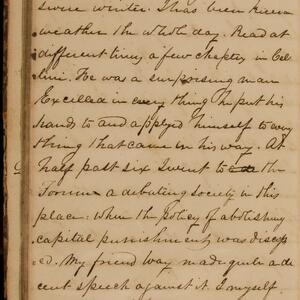 since winter. It has been keen
weather the whole day. Read at
different times a few chapters in Cel
lini. He was a surprising man
Excelled in every thing he put his
hands to and applyed himself to every
thing that came in his way. At
half past six I went to the
Forum a debating society in this
place: when the policy of abolishing
capital punishment, was discuss
ed. My friend Way made quite a de
cent speech against it. I myself